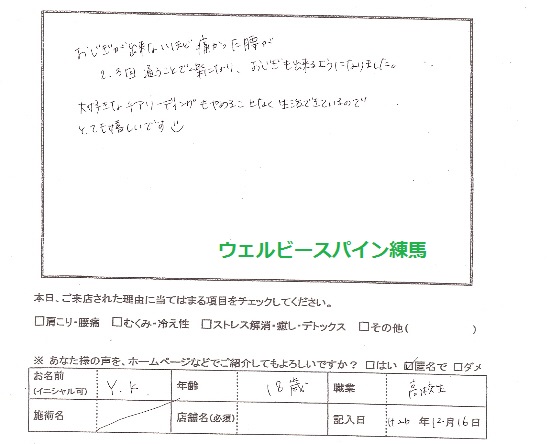 おじぎが出来ないほど痛かった腰が
2、3回通うことで楽になり、おじぎも出来るようになりました。
大好きなチアリーディングもやめることなく生活できているので
とても嬉しいです
ウェルビースパイン練馬
本日、ご来店された理由に当てはまる項目をチェックしてください。
□肩こり・腰痛 □むくみ・冷え性 □ストレス解消・癒し・デトックス □その他( )
※ あなた様の声を、ホームページなどでご紹介してもよろしいですか？ □はい ☑匿名で □ダメ
お名前 (イニシャル可) Y.K. 年齢 18歳 職業 高校生
施術名 店舗名(必須) 記入日 年12月16日